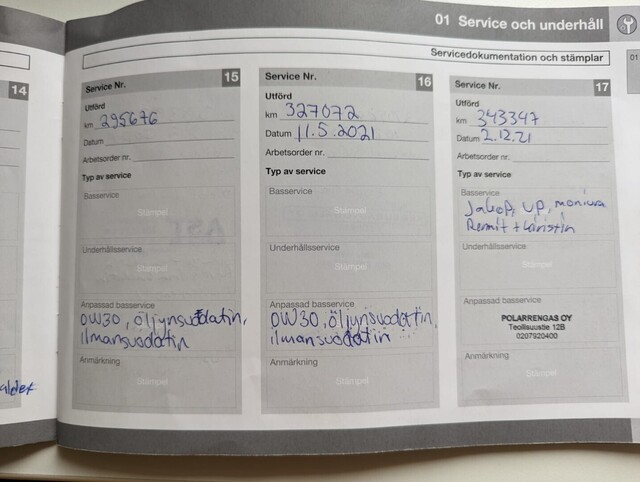 01 Service och underhåll
Servicedokumentation och stämplar
01
14
Service Nr. 15
Utförd
km 295676
Datum
Arbetsorder nr.
Typ av service
Basservice
Stämpel
Underhållsservice
Stämpel
Anpassad basservice
0W30, öljynsuodatin,
ilmansuodatin
Anmärkning
Stämpel
Service Nr. 16
Utförd
km 327072
Datum 11.5.2021
Arbetsorder nr.
Typ av service
Basservice
Stämpel
Underhållsservice
Stämpel
Anpassad basservice
0W30, öljynsuodatin,
ilmansuodatin
Anmärkning
Stämpel
Service Nr. 17
Utförd
km 343347
Datum 2.12.21
Arbetsorder nr.
Typ av service
Basservice
Underhållsservice
Stämpel
Anpassad basservice
POLARRENGAS OY
Teollisuustie 12B
0207920400
Anmärkning
Stämpel